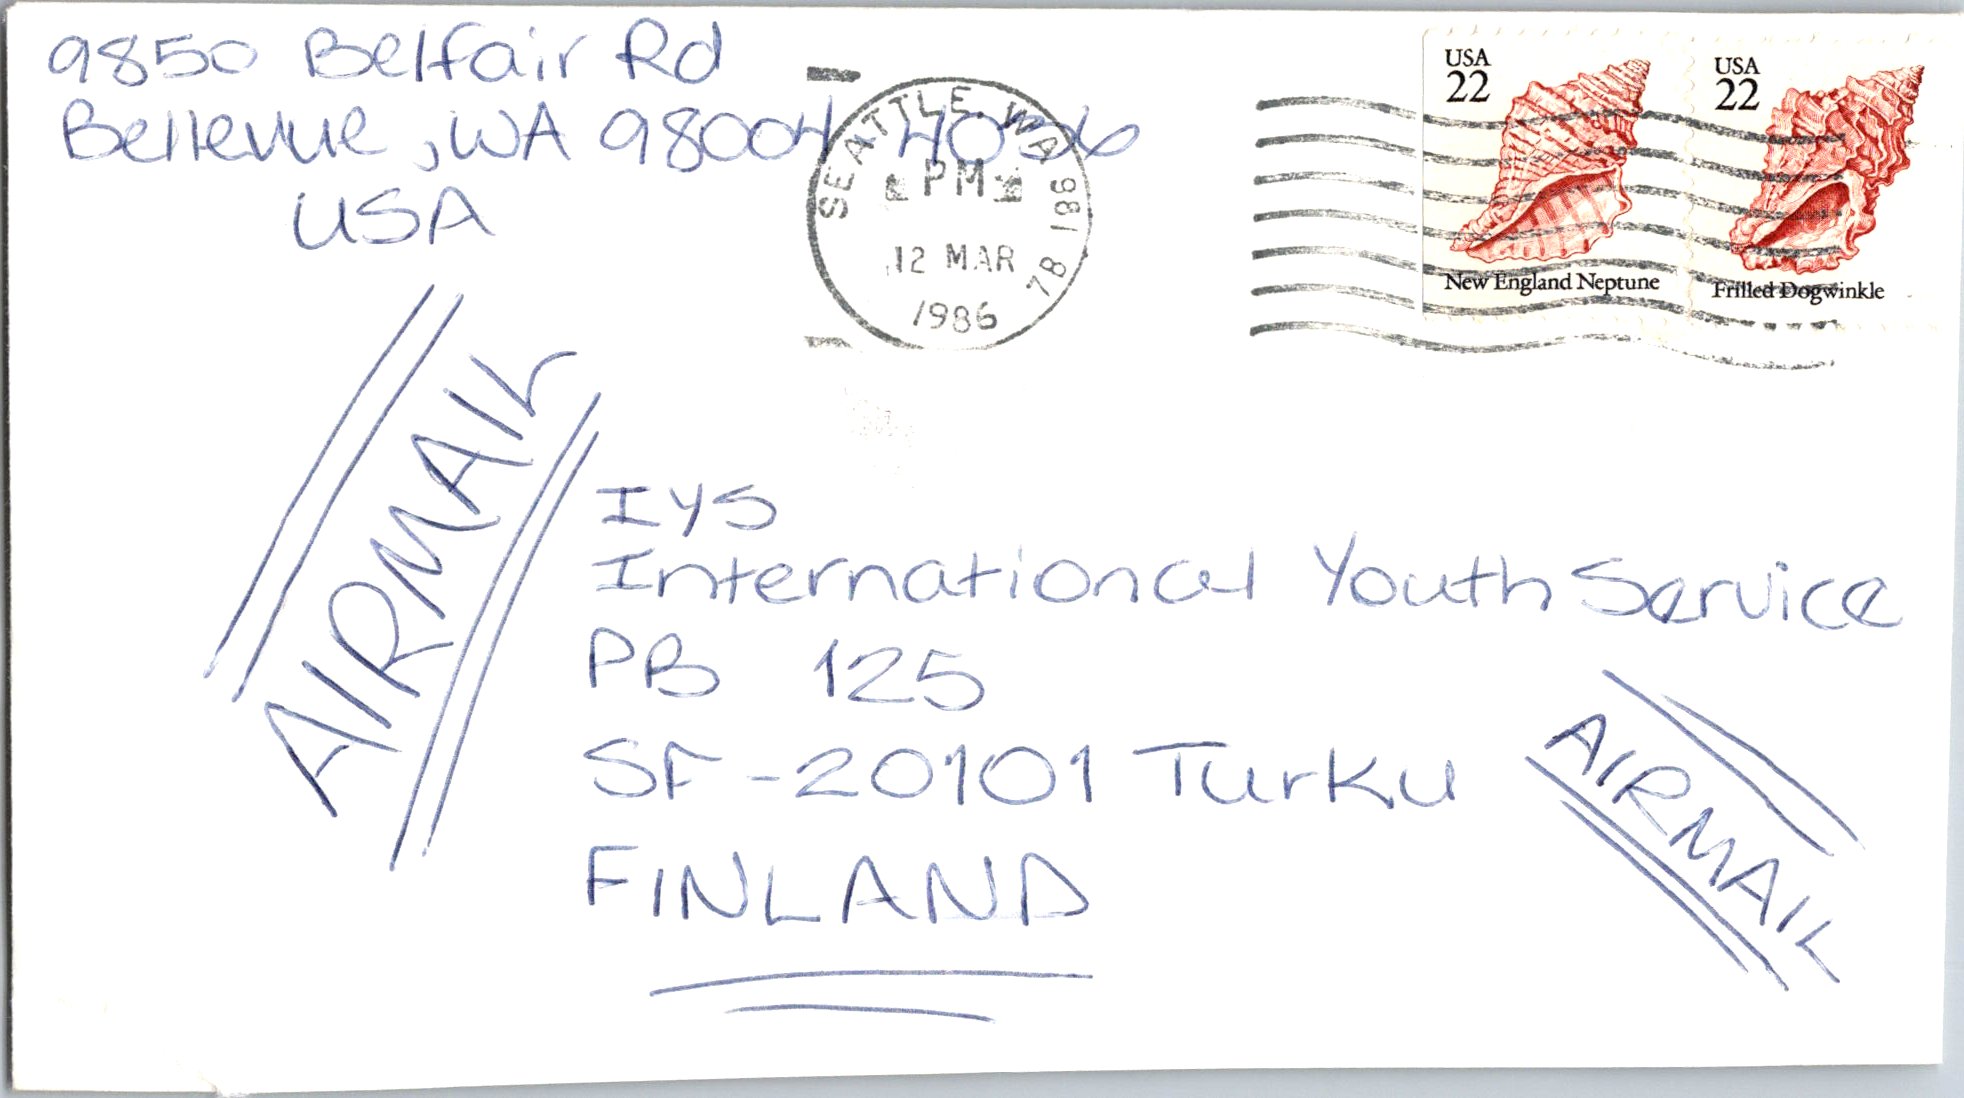 9850 Belfair Rd
Bellevue, WA 98004 4036
USA
SEATTLE, WA 981 87
PM
12 MAR
1986
USA
22
New England Neptune
USA
22
Frilled Dogwinkle
AIRMAIL
IYS
International Youth Service
PB 125
SF-20101 Turku
FINLAND
AIRMAIL